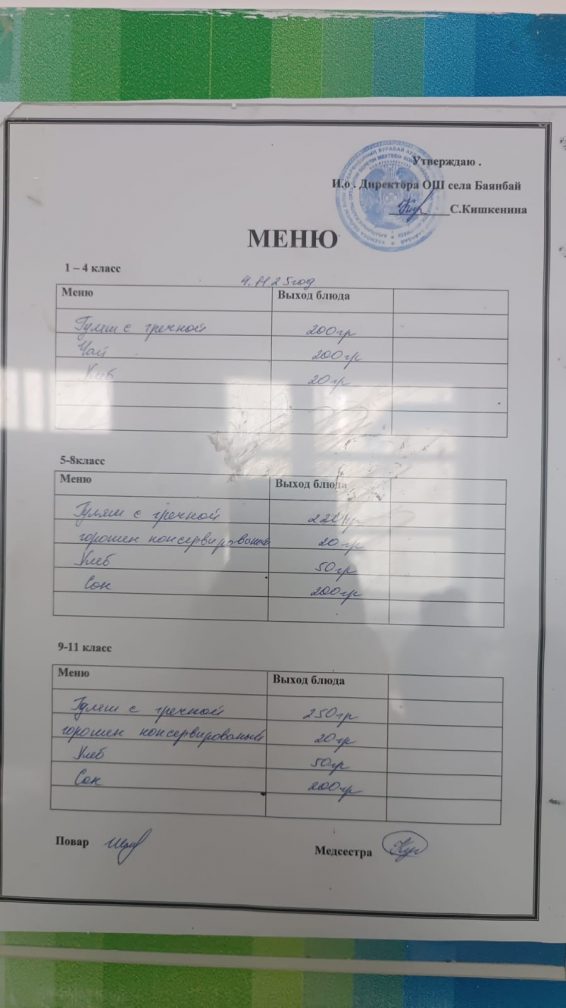 Утверждаю .
И.о . Директора ОШ села Баянбай
С.Кишкенина
МЕНЮ
1 – 4 класс
4.11 25год
Меню Выход блюда
Гуляш с гречкой 200гр
Чай 200гр
Хлеб 20гр
5-8класс
Меню Выход блюда
Гуляш с гречкой
горошек консервированный 20гр
Хлеб 50гр
Сок 200гр
9-11 класс
Меню Выход блюда
Гуляш с гречкой 250гр
горошек консервированный 20гр
Хлеб 50гр
Сок 200гр
Повар
Медсестра